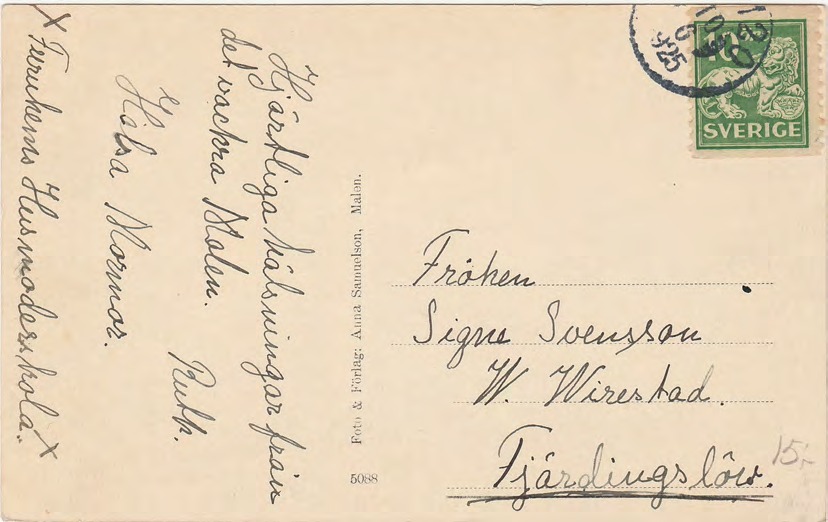 Hjärtliga hälsningar från
det vackra Malen.
Ruth.
Hälsa Mormor.
x Furuhems Husmoderskola. x
Foto & Förlag: Anna Samuelson, Malen.
5088
10
SVERIGE
925
Fröken
Signe Svensson
W. Wirestad.
Fjärdingslöw.
15:-